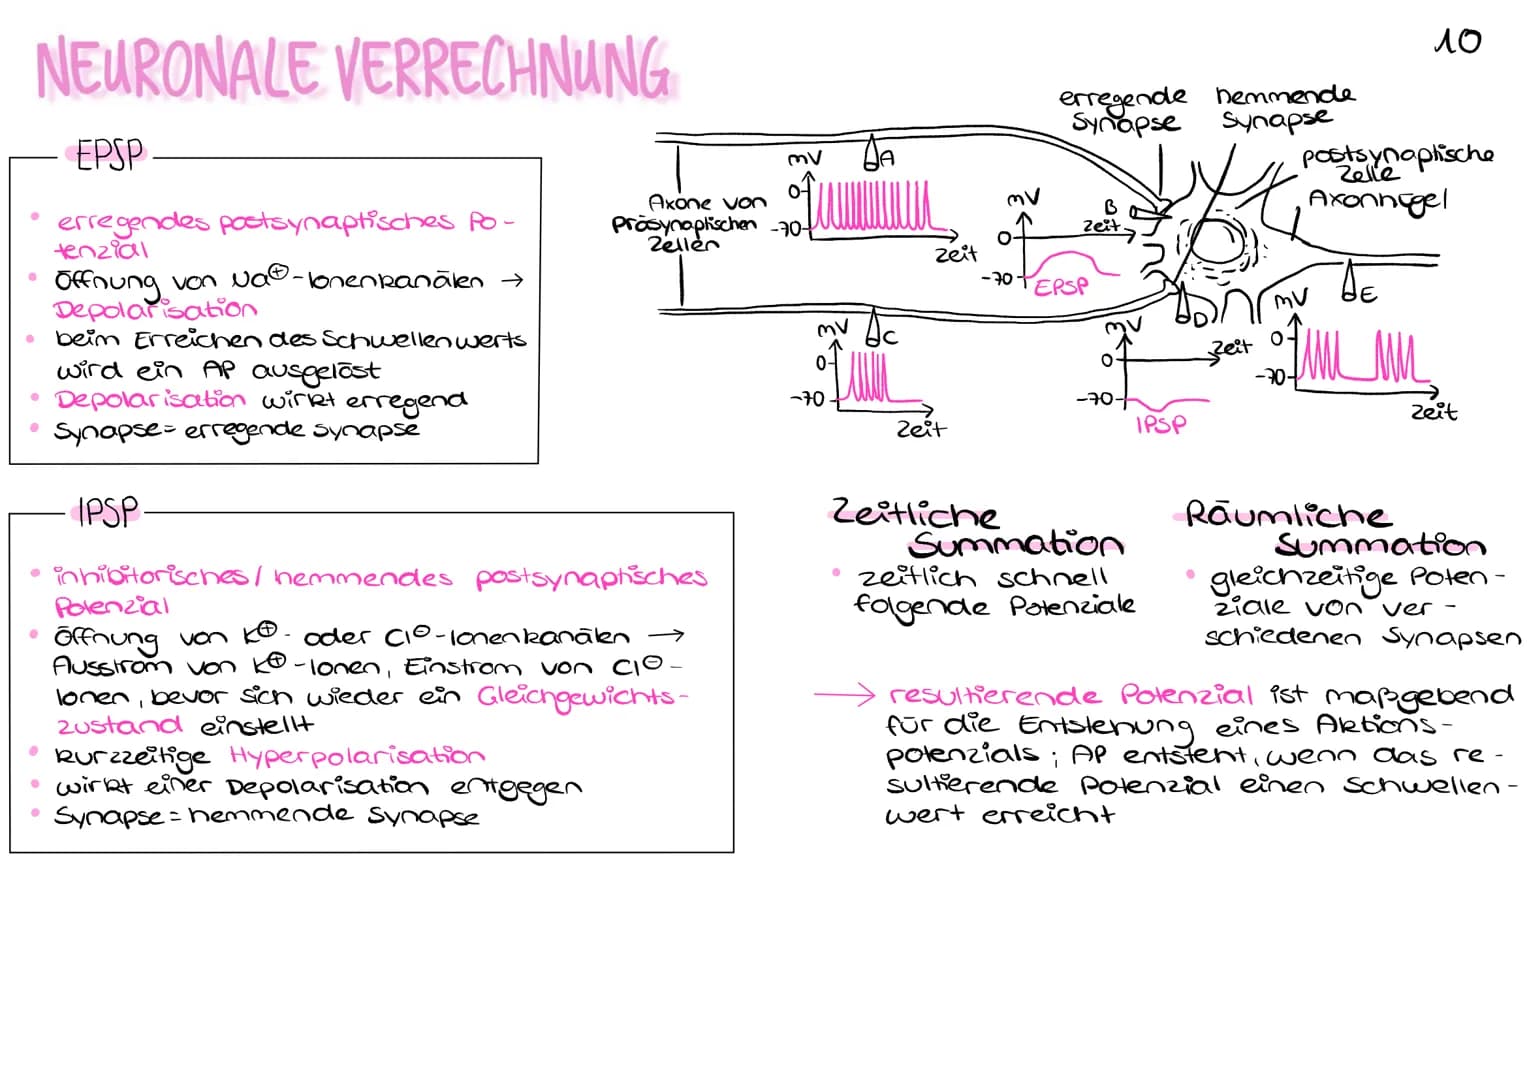 NEURONALE VERRECHNUNG
10
EPSP
• erregendes postsynaptisches Po-
tenzial
• Öffnung von Na⊕-Ionenkanälen →
Depolarisation
• beim Erreichen des Schwellenwerts
wird ein AP ausgelöst
• Depolarisation wirkt erregend
• Synapse = erregende Synapse
erregende
Synapse
hemmende
Synapse
postsynaptische
Zelle
Axonhügel
Axone von
Präsynaptischen
Zellen
mV
A
0
-70
Zeit
mV
B
Zeit
0
-70
EPSP
mV
C
0
-70
Zeit
mV
D
Zeit
0
-70
IPSP
mV
E
0
-70
Zeit
IPSP
• inhibitorisches / hemmendes postsynaptisches
Potenzial
• Öffnung von K⊕- oder Cl⊖-Ionenkanälen →
Ausstrom von K⊕-Ionen, Einstrom von Cl⊖-
Ionen, bevor sich wieder ein Gleichgewichts-
zustand einstellt
• kurzzeitige Hyperpolarisation
• wirkt einer Depolarisation entgegen
• Synapse = hemmende Synapse
Zeitliche
Summation
• zeitlich schnell
folgende Potenziale
Räumliche
Summation
• gleichzeitige Poten-
ziale von ver-
schiedenen Synapsen
→ resultierende Potenzial ist maßgebend
für die Entstehung eines Aktions-
potenzials; AP entsteht, wenn das re-
sultierende Potenzial einen Schwellen-
wert erreicht